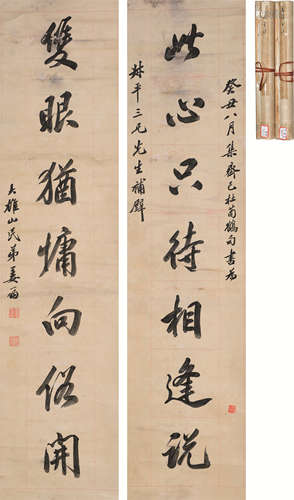 癸丑八月集齊己杜荀鶴句書為
此心只待相逢説
味平三兄先生補壁
雙眼猶慵向俗開
大雄山民弟姜筠